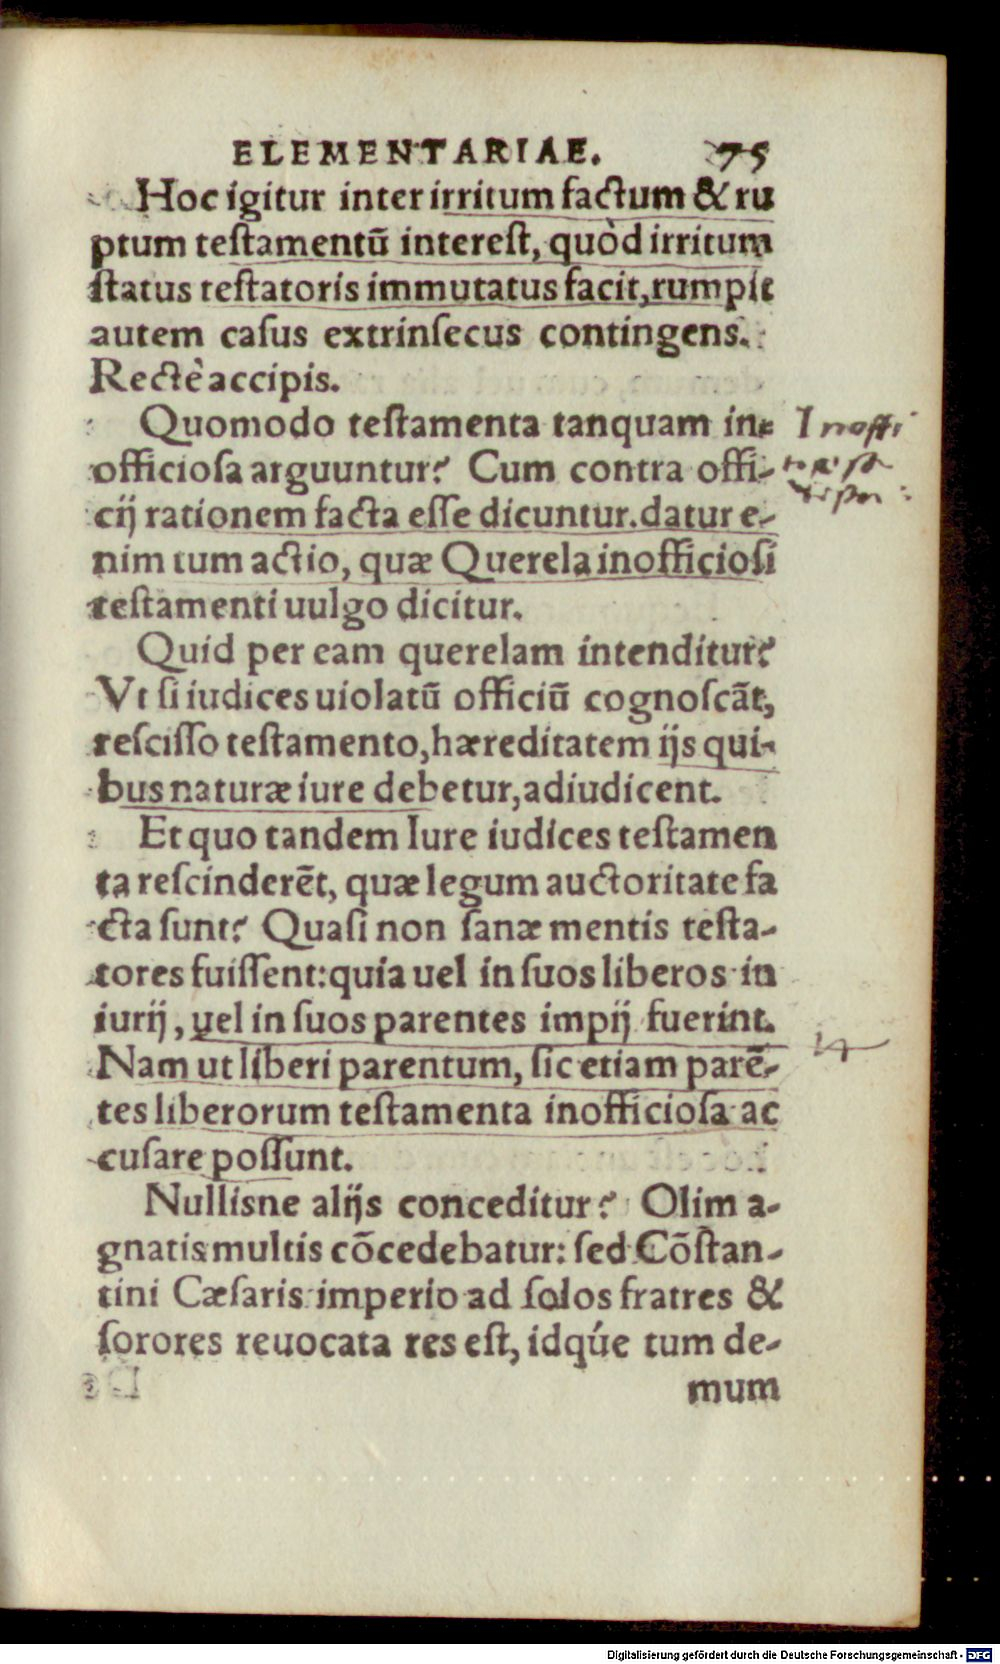 ELEMENTARIAE. 75
Hoc igitur inter irritum factum & ru
ptum teſtamentũ intereſt, quòd irritum
ſtatus teſtatoris immutatus facit, rumpit
autem caſus extrinſecus contingens.
Rectè accipis.
Quomodo teſtamenta tanquam in-
officioſa arguuntur? Cum contra offi-
cij rationem facta eſſe dicuntur. datur e-
nim tum actio, quæ Querela inofficioſi
teſtamenti uulgo dicitur.
Quid per eam querelam intenditur?
Vt ſi iudices uiolatũ officiũ cognoſcãt,
reſciſſo teſtamento, hæreditatem ijs qui-
bus naturæ iure debetur, adiudicent.
Et quo tandem Iure iudices teſtamen
ta reſcinderẽt, quæ legum auctoritate fa
cta ſunt? Quaſi non ſanæ mentis teſta-
tores fuiſſent: quia uel in ſuos liberos in
iurij, uel in ſuos parentes impij fuerint.
Nam ut liberi parentum, ſic etiam parẽ-
tes liberorum teſtamenta inofficioſa ac
cuſare poſſunt.
Nullisne alijs conceditur? Olim a-
gnatis multis cõcedebatur: ſed Cõſtan-
tini Cæſaris imperio ad ſolos fratres &
ſorores reuocata res eſt, idqúe tum de-
mum
Digitalisierung gefördert durch die Deutsche Forschungsgemeinschaft - DFG